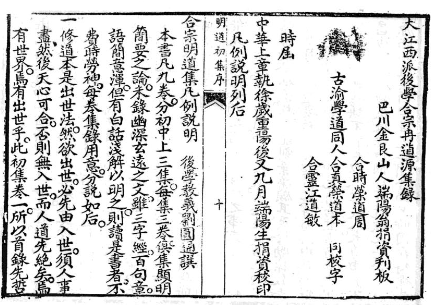 大江西派後學合宗冉道源集錄
巴川金良山人端陽翁捐資刋板
合蒔榮道周
古渝學道同人合真藜道本 同校字
合靈江道敏
時屆
中華上章執徐歲重陽後又九月端陽生捐資校印
凡例説明列后
明道初集序
十
合宗明道集凡例説明 後學教義劉圓通譔
本書凡九卷分初中上三集每三卷俱集顯明
簡要之論末錄幽深玄遠之文雖三字經百句章
語簡言渾但有白話淺解以明之則讀是書者不
費蔣勞神每卷集錄用意分說如后
一修道本是出世法然欲出世必先由入世須人事
盡然後天心可合否則無入世而人道先絕矣焉
有世界焉有出世乎此初集卷一所以首錄先哲